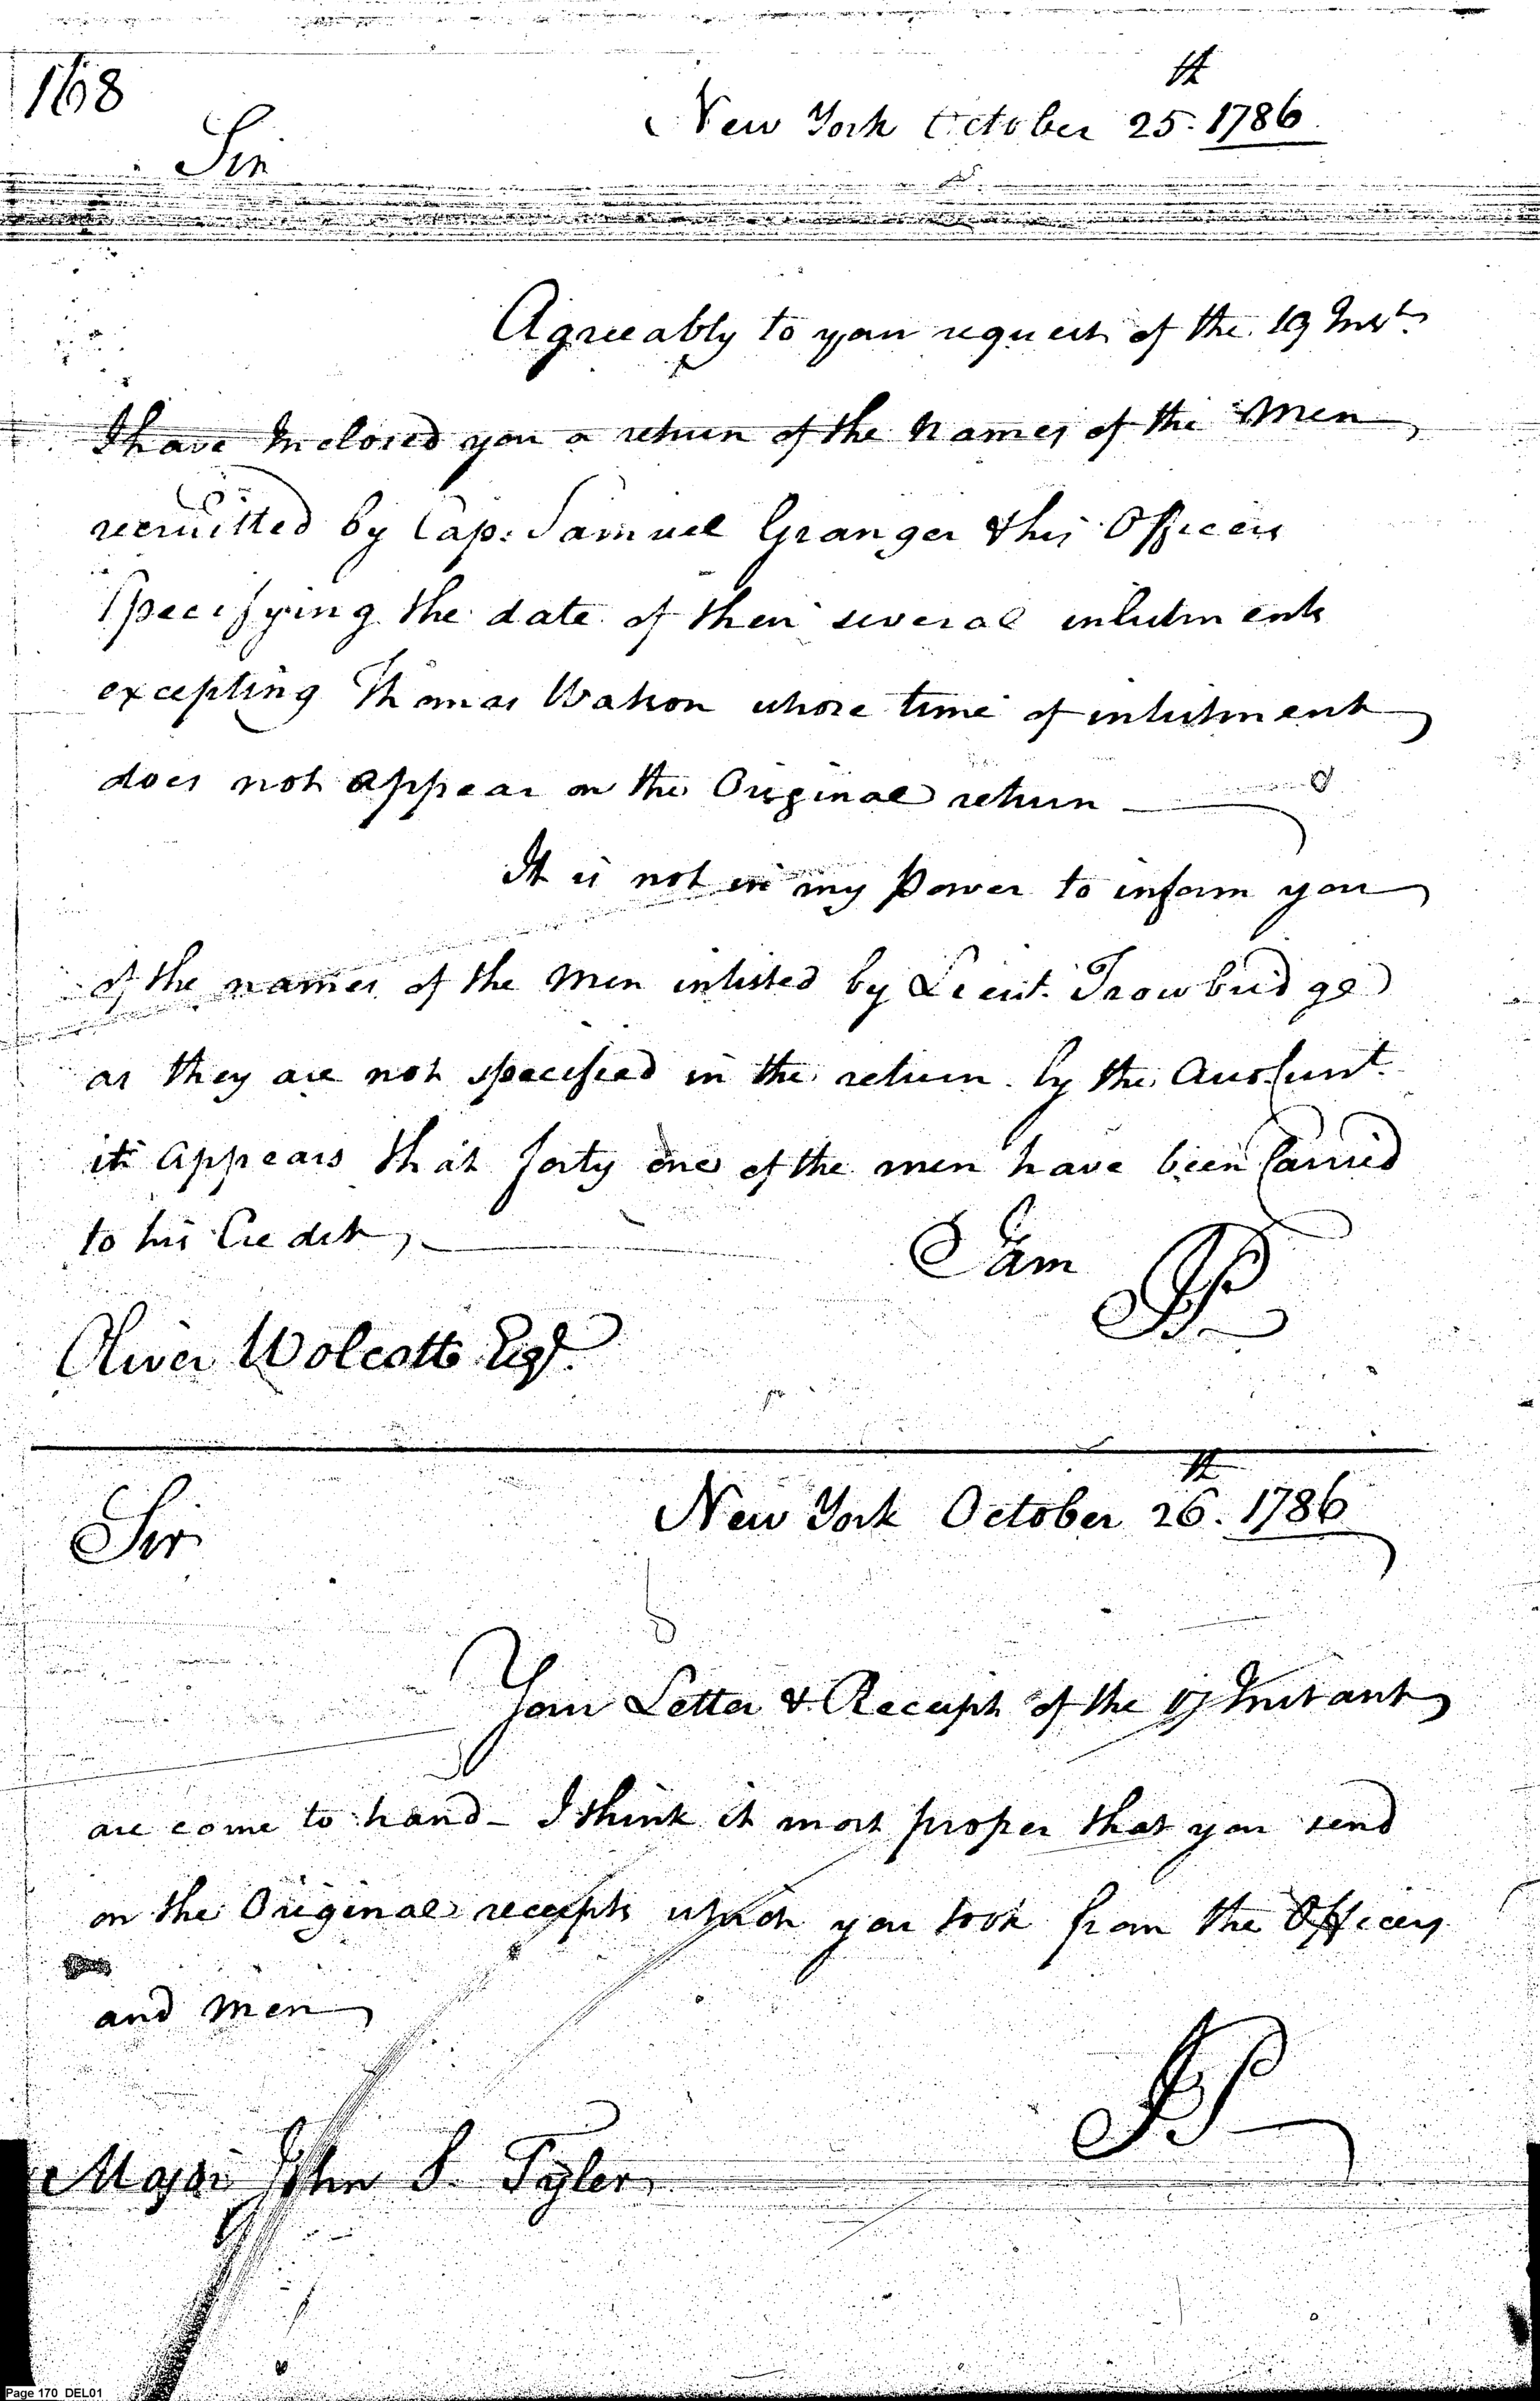 168
New York October 25th. 1786
Sir
Agreeably to your request of the 19 Inst.
I have Inclosed you a return of the Names of the Men
recruitted by Cap: Samuel Granger & his Officers
Specifying the date of their several inlistments
excepting Thomas Watson whose time of inlistment
does not appear on the Original return
It is not in my Power to inform you
of the names of the Men inlisted by Lieut. Trowbridge
as they are not specified in the return. by the Account
it appears that forty one of the men have been Carried
to his Credit,
I am
JP
Oliver Wolcott Esqr.
New York October 26th. 1786
Sir
Your Letter & Receipt of the Instant
are come to hand - I think it most proper that you send
on the Original receipts which you took from the Officers
and Men
JP
Major John S. Tyler
Page 170 DEL01